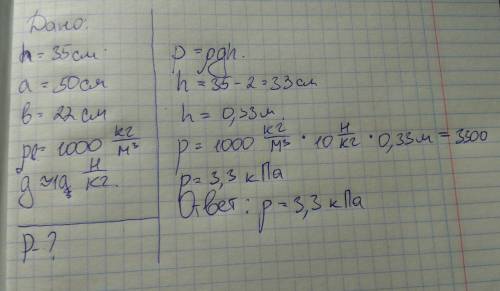 Дано:
h = 35см
a = 50см
в = 22 см
ρв = 1000 кг/м³
g ≈ 10 Н/кг.
P - ?
p = ρgh.
h = 35 - 2 = 33 см
h = 0,33 м.
p = 1000 кг/м³ · 10 Н/кг · 0,33 м = 3300
p = 3,3 кПа
Ответ: p = 3,3 кПа